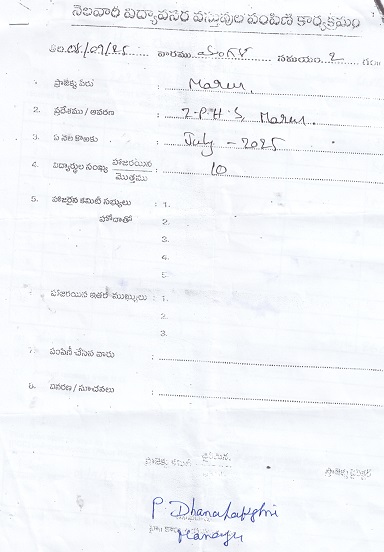 నెలవారి విద్యావసర వస్తువుల పంపిణి కార్యక్రమం
తేది.08/07/25 వారము మంగళ సమయం 2 గం॥
1. ప్రాజెక్టు పేరు : Marur
2. ప్రదేశము / ఆవరణ : Z.P.H.S, Marur.
3. ఏ నెల కొఱకు : July - 2025
4. విద్యార్థుల సంఖ్య హాజరయిన / మొత్తము : 10
5. హాజరైన కమిటీ సభ్యులు : 1.
హోదాతో 2.
3.
4.
5
హాజరయిన ఇతర ముఖ్యులు : 1.
2.
3.
7. పంపిణీ చేసిన వారు :
8. వివరణ / సూచనలు :
ప్రాజెక్టు
P. Dhanalakshmi